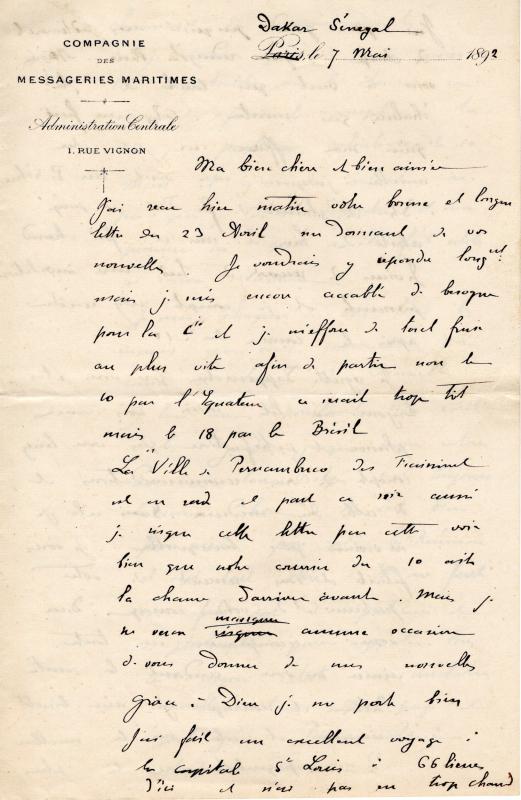 COMPAGNIE
DES
MESSAGERIES MARITIMES
Administration Centrale
1, RUE VIGNON
Dakar Sénégal
Paris, le 7 Mai 1892
Ma bien chère et bien aimée
J'ai reçu hier matin votre bonne et longue
lettre du 23 Avril me donnant de vos
nouvelles. Je voudrais y répondre longnt
mais je suis encore accablé de besogne
pour la Cie et je m'efforce de tout finir
au plus vite afin de partir non le
10 par l'Equateur ce serait trop tôt
mais le 18 par le Brésil
La "Ville de Pernambuco des
est en rade et part ce soir aussi
je risque cette lettre par cette voie
bien que notre courrier du 10 ait
la chance d'arriver avant. Mais je
ne veux manquer aucune occasion
de vous donner de mes nouvelles
grâce à Dieu je me porte bien
J'ai fait un excellent voyage à
la capitale St Louis à 66 lieues
d'ici et n'ai pas eu trop chaud